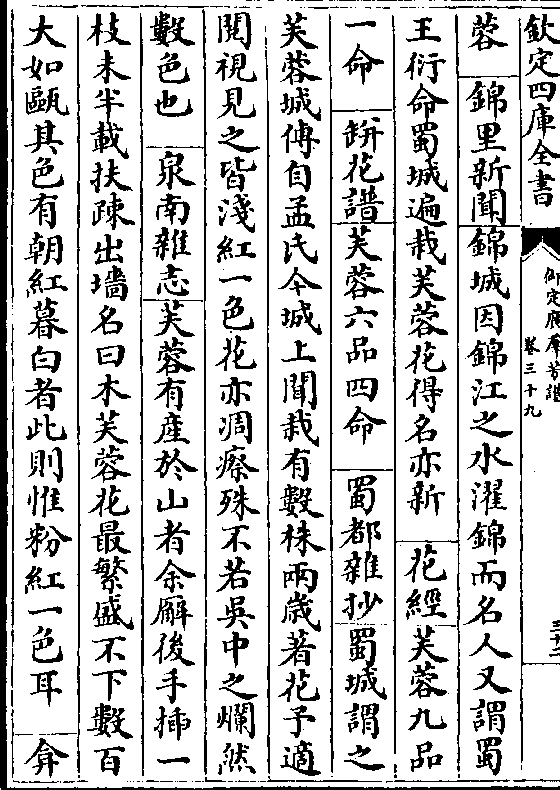 欽定四庫全書
御定佩文齋廣羣芳譜
卷三十九
蓉 錦里新聞 錦城因錦江之水濯錦而名人又謂蜀
王衍命蜀城遍栽芙蓉花得名亦新 花經 芙蓉九品
一命 缾花譜 芙蓉六品四命 蜀都雜抄 蜀城謂之
芙蓉城傳自孟氏今城上間栽有數株兩歲著花予適
閱視見之皆淺紅一色花亦凋瘵殊不若吳中之爛然
數色也 泉南雜志 芙蓉有產於山者余廨後手揷一
枝未半載扶疎出墻名曰木芙蓉花最繁盛不下數百
大如甌其色有朝紅暮白者此則惟粉紅一色耳 弇